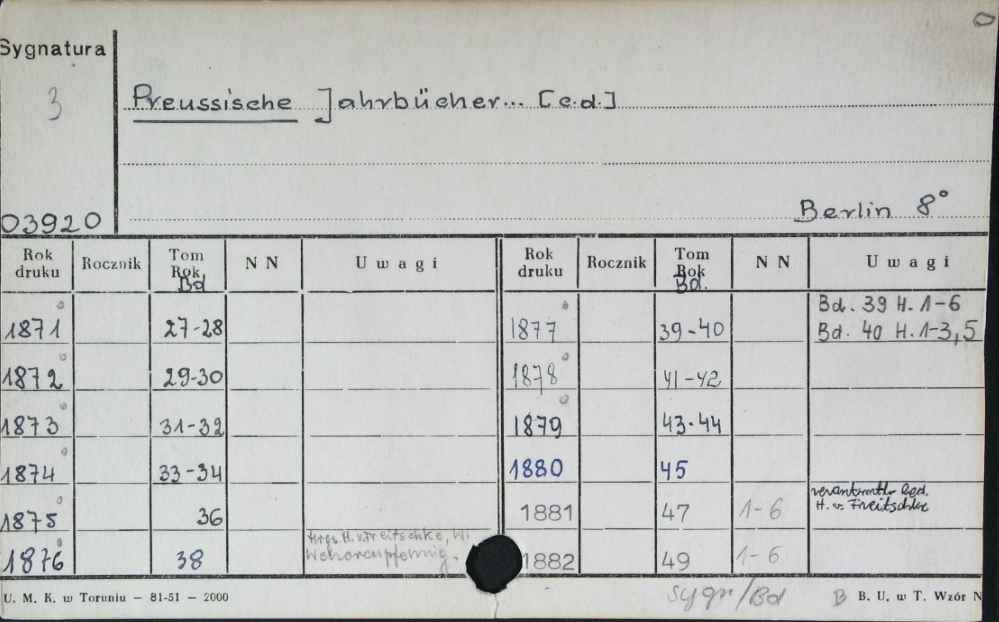 Sygnatura
3
Preussische Jahrbücher... [e.d.]
03920
Berlin 8°
Rok druku Rocznik Tom Rok Bd N N Uwagi Rok druku Rocznik Tom Rok Bd. N N Uwagi
Bd. 39 H. 1-6
1871 27-28 1877 39-40 Bd. 40 H. 1-3,5
1872 29-30 1878 41-42
1873 31-32 1879 43-44
1874 33-34 1880 45
verantwortl. Red.
1875 36 1881 47 1-6 H. v. Treitschke
Hrgs. H. v. Treitschke, W.
1876 38 Wehrenpfennig. 1882 49 1-6
sygn/Bd B
U. M. K. w Toruniu — 81-51 — 2000 B. U. w T. Wzór N